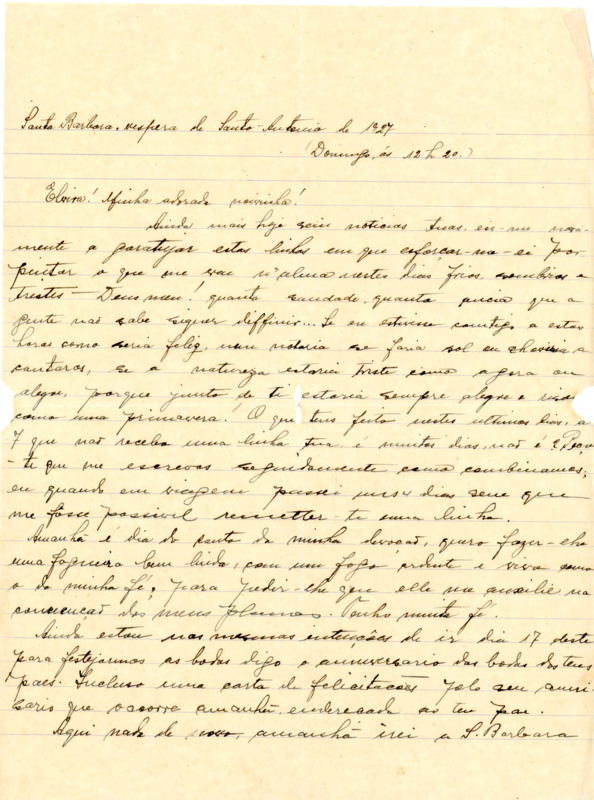 Santa Barbara, vespera de Santo Antonio de 1927
(Domingo, ás 12 h 20.)
Elvira! Minha adorada noivinha!
Ainda mais hoje sem noticias tuas, eis-me nova-
mente a garatujar estas linhas em que esforcar-me-ei por
pintar o que me vae n'alma nestes dias frios, sombrios e
tristes — Deus meu! quanta saudade, quanta ancia que a
gente nao sabe siquer diffinir... Se eu estivesse comtigo a estas
horas como seria feliz, nem notaria se faria sol ou choveria a
cantaros, se a natureza estaria triste como agora ou
alegre, porque junto de ti estaria sempre alegre e
como uma primavera! O que tens feito nestes ultimos dias, a
7 que nao recebo uma linha tua é muitos dias, nao é?
-te que me escrevas seguidamente como combinamos;
eu quando em viagem passei uns 4 dias sem que
me fosse possivil remetter-te uma linha.
Amanhã é dia do santo da minha devocao, quero fazer-lhe
uma fogueira bem linda, com um fogo ardente e vivo como
o da minha fé, para pedir-lhe que elle me auxilie na
dos meus planos. Tenho muita fé.
Ainda estou nas mesmas intenções de ir dia 17 deste
para festejarmos as bodas digo o anniversario das bodas dos teus
paes. Incluso uma carta de felicitacões pelo seu anni-
sario que occorre amanhã, enderecada ao teu pae.
Aqui nada de novo, amanhã irei a S. Barbara